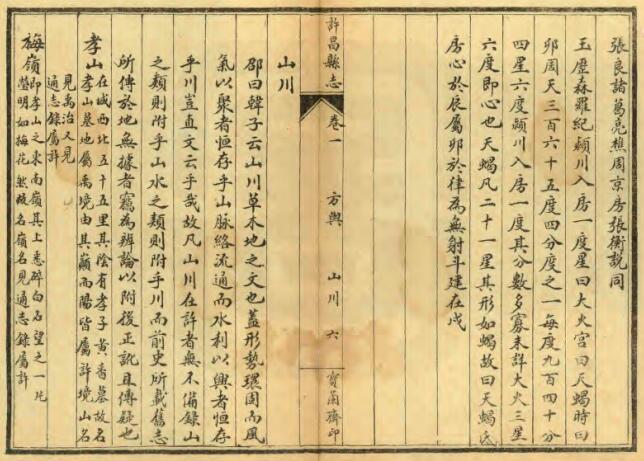 張良諸葛亮樵周京房張衡說同
玉歷森羅紀潁川入房一度星曰大火宮曰天蝎時曰
卯周天三百六十五度四分度之一每度九百四十分
四星六度潁川入房一度其分數多寡未詳大火三星
六度即心也天蝎凡二十一星其形如蝎故曰天蝎氐
房心於辰屬卯於律為無射斗建在戌
許昌縣志
卷一 方輿 山川 六 寶蘭齋印
山川
邵曰韓子云山川草木地之文也蓋形勢環固而風
氣以聚者恒存乎山脉絡流通而水利以興者恒存
乎川豈直文云乎哉故凡山川在許者無不備錄山
之類則附乎山水之類則附乎川而前史所載舊志
所傳於地無據者竊為辨論以附後正訛且傳疑也
孝山在城西北五十五里其陰有孝子黃香墓故名
孝山墓地屬禹境由其巔而陽皆屬許境山名
見禹治又見
通志錄屬許
梅嶺即孝山之東南嶺其上悉碎白石望之一片
瑩明如梅花然故名嶺名見通志錄屬許